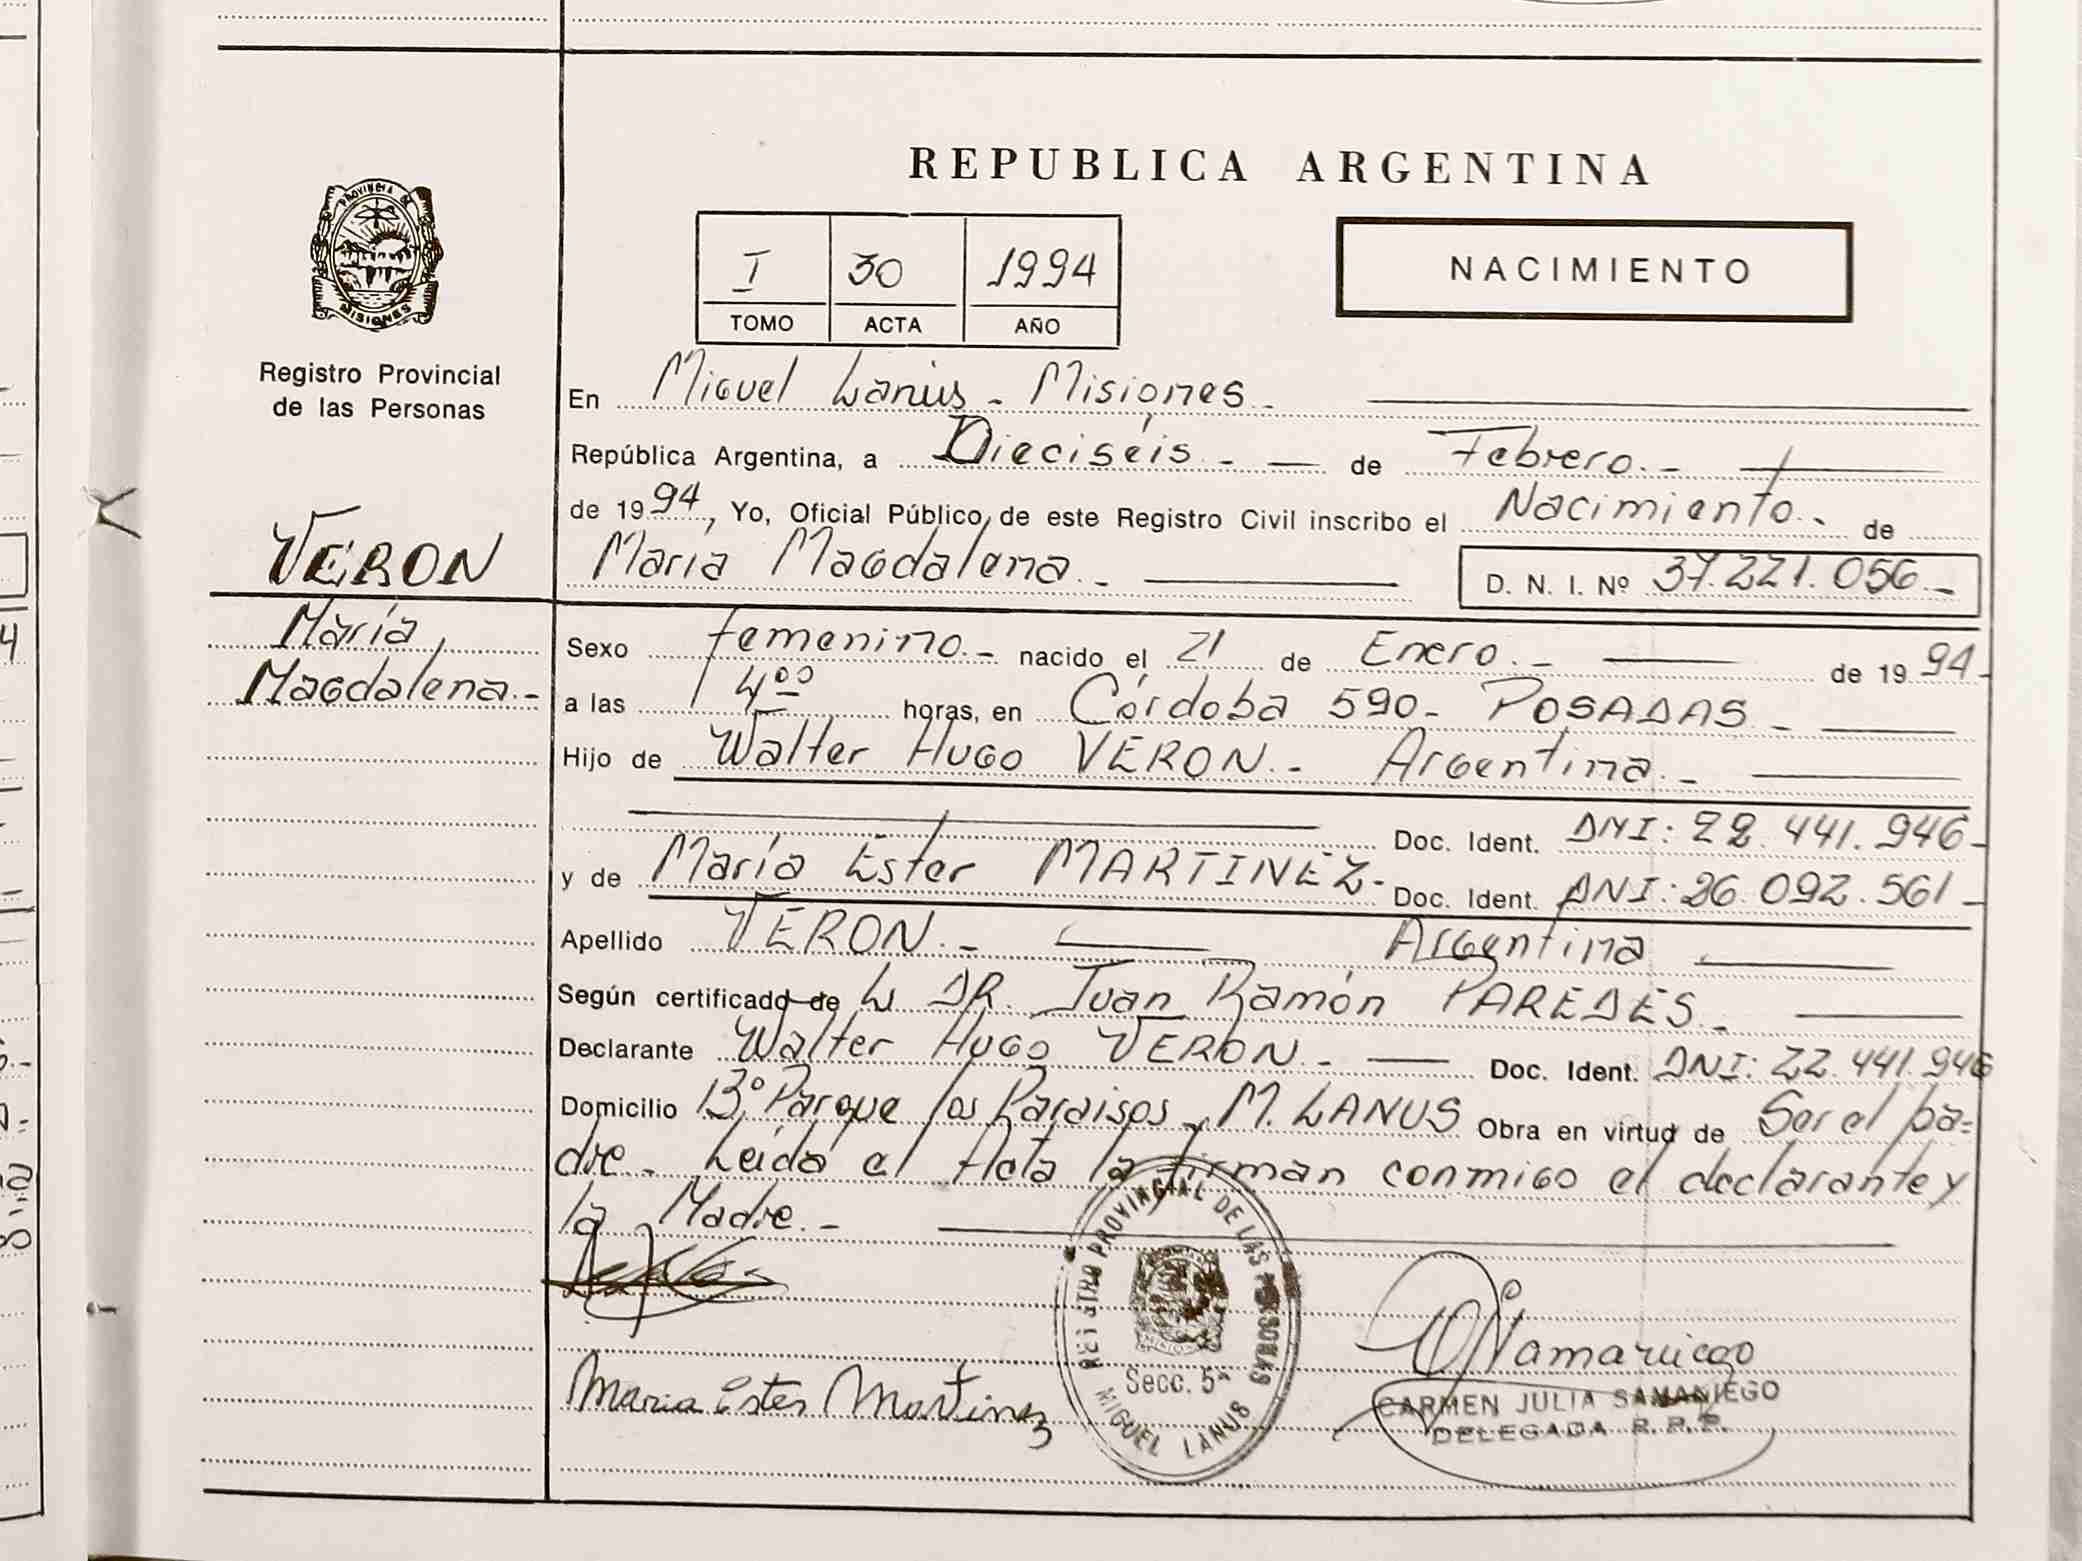 REPUBLICA ARGENTINA
PROVINCIA DE
MISIONES
Registro Provincial
de las Personas
I 30 1994
TOMO ACTA AÑO
NACIMIENTO
En Miguel Lanús - Misiones -
República Argentina, a Dieciséis - de Febrero -
de 1994, Yo, Oficial Público, de este Registro Civil inscribo el Nacimiento - de
VERON María Magdalena - D. N. I. Nº 37.221.056 -
María
Magdalena -
Sexo femenino - nacido el 21 de Enero - de 1994 -
a las 4⁰⁰ horas, en Córdoba 590 - POSADAS -
Hijo de Walter Hugo VERON - Argentina -
Doc. Ident. DNI: 22.441.946 -
y de María Ester MARTINEZ - Doc. Ident. DNI: 26.092.561 -
Apellido VERON - Argentina
Según certificado de DR. Juan Ramón PAREDES -
Declarante Walter Hugo VERON - Doc. Ident. DNI: 22.441.946
Domicilio Bº Parque los Paraisos - M. LANUS Obra en virtud de Ser el pa=
dre - Leída el Acta la firman conmigo el declarante y
la Madre -
REGISTRO PROVINCIAL DE LAS PERSONAS
Secc. 5ª
MIGUEL LANUS
Maria Ester Martinez
CARMEN JULIA SAMANIEGO
DELEGADA R.P.P.